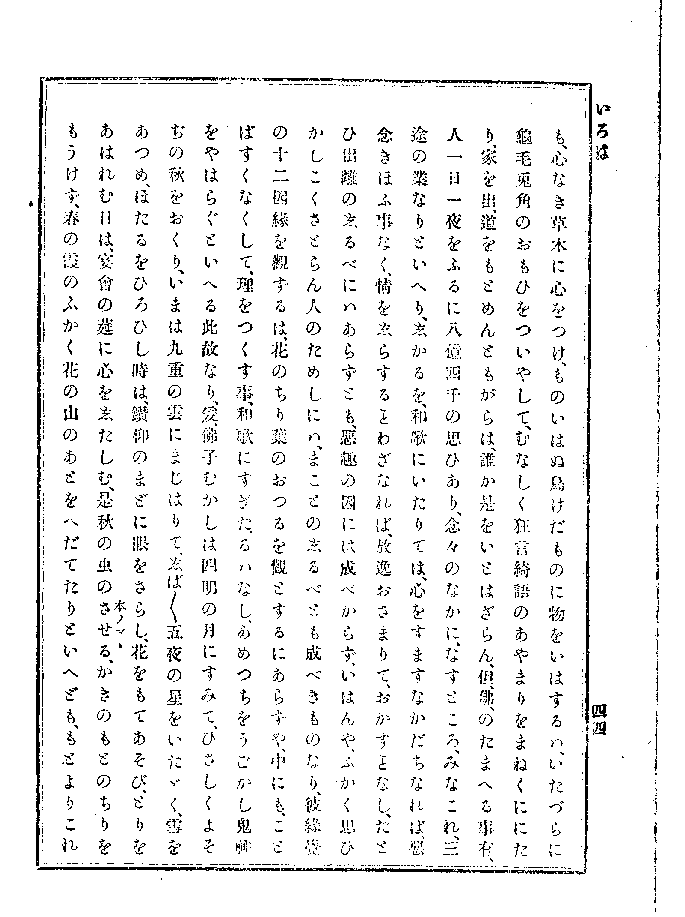 いろは
四四
も、心なき草木に心をつけ、ものいはぬ鳥けだものに物をいはするハ、いたづらに
龜毛兎角のおもひをついやして、むなしく狂言綺語のあやまりをまねくににた
り、家を出、道をもとめんともがらは、誰か是をいとはざらん、但、佛のたまへる事有、
人一日一夜をふるに八億四千の思ひあり、念々のなかに、なすところ、みなこれ、三
途の業なりといへり、ゑかるを、和歌にいたりては、心をすますなかだちなれば、惡
念きほふ事なく、情をゑらするとわざなれば、放逸おさまりて、おかすとなし、たと
ひ出離のゑるべにハあらずとも、惡趣の因には成べからず、いはんや、ふかく思ひ
かしこくさとらん人のためしにハ、まことのゑるべとも成べきものなり、彼緣覺
の十二因緣を觀するは、花のちり葉のおつるを觀とするにあらずや、中にも、こと
ばすくなくして、理をつくす事、和歌にすぎたるハなし、あめつちをうごかし鬼神
をやはらぐといへる此故なり、爰、佛子むかしは四明の月にすみて、ひさしくよそ
ぢの秋をおくり、いまは九重の雲にまじはりて、ゑば〱五夜の星をいたゞく、雪を
あつめ、ほたるをひろひし時は、鑽仰のまどに眼をさらし、花をもてあそび、とりを
あはれむ日は、宴會の莚に心をゑたしむ、是秋の虫のさせる、かきのもとのちりを
本ノマヽ
もうけず、春の霞のふかく花の山のあとをへだてたりといへども、もとよりこれ